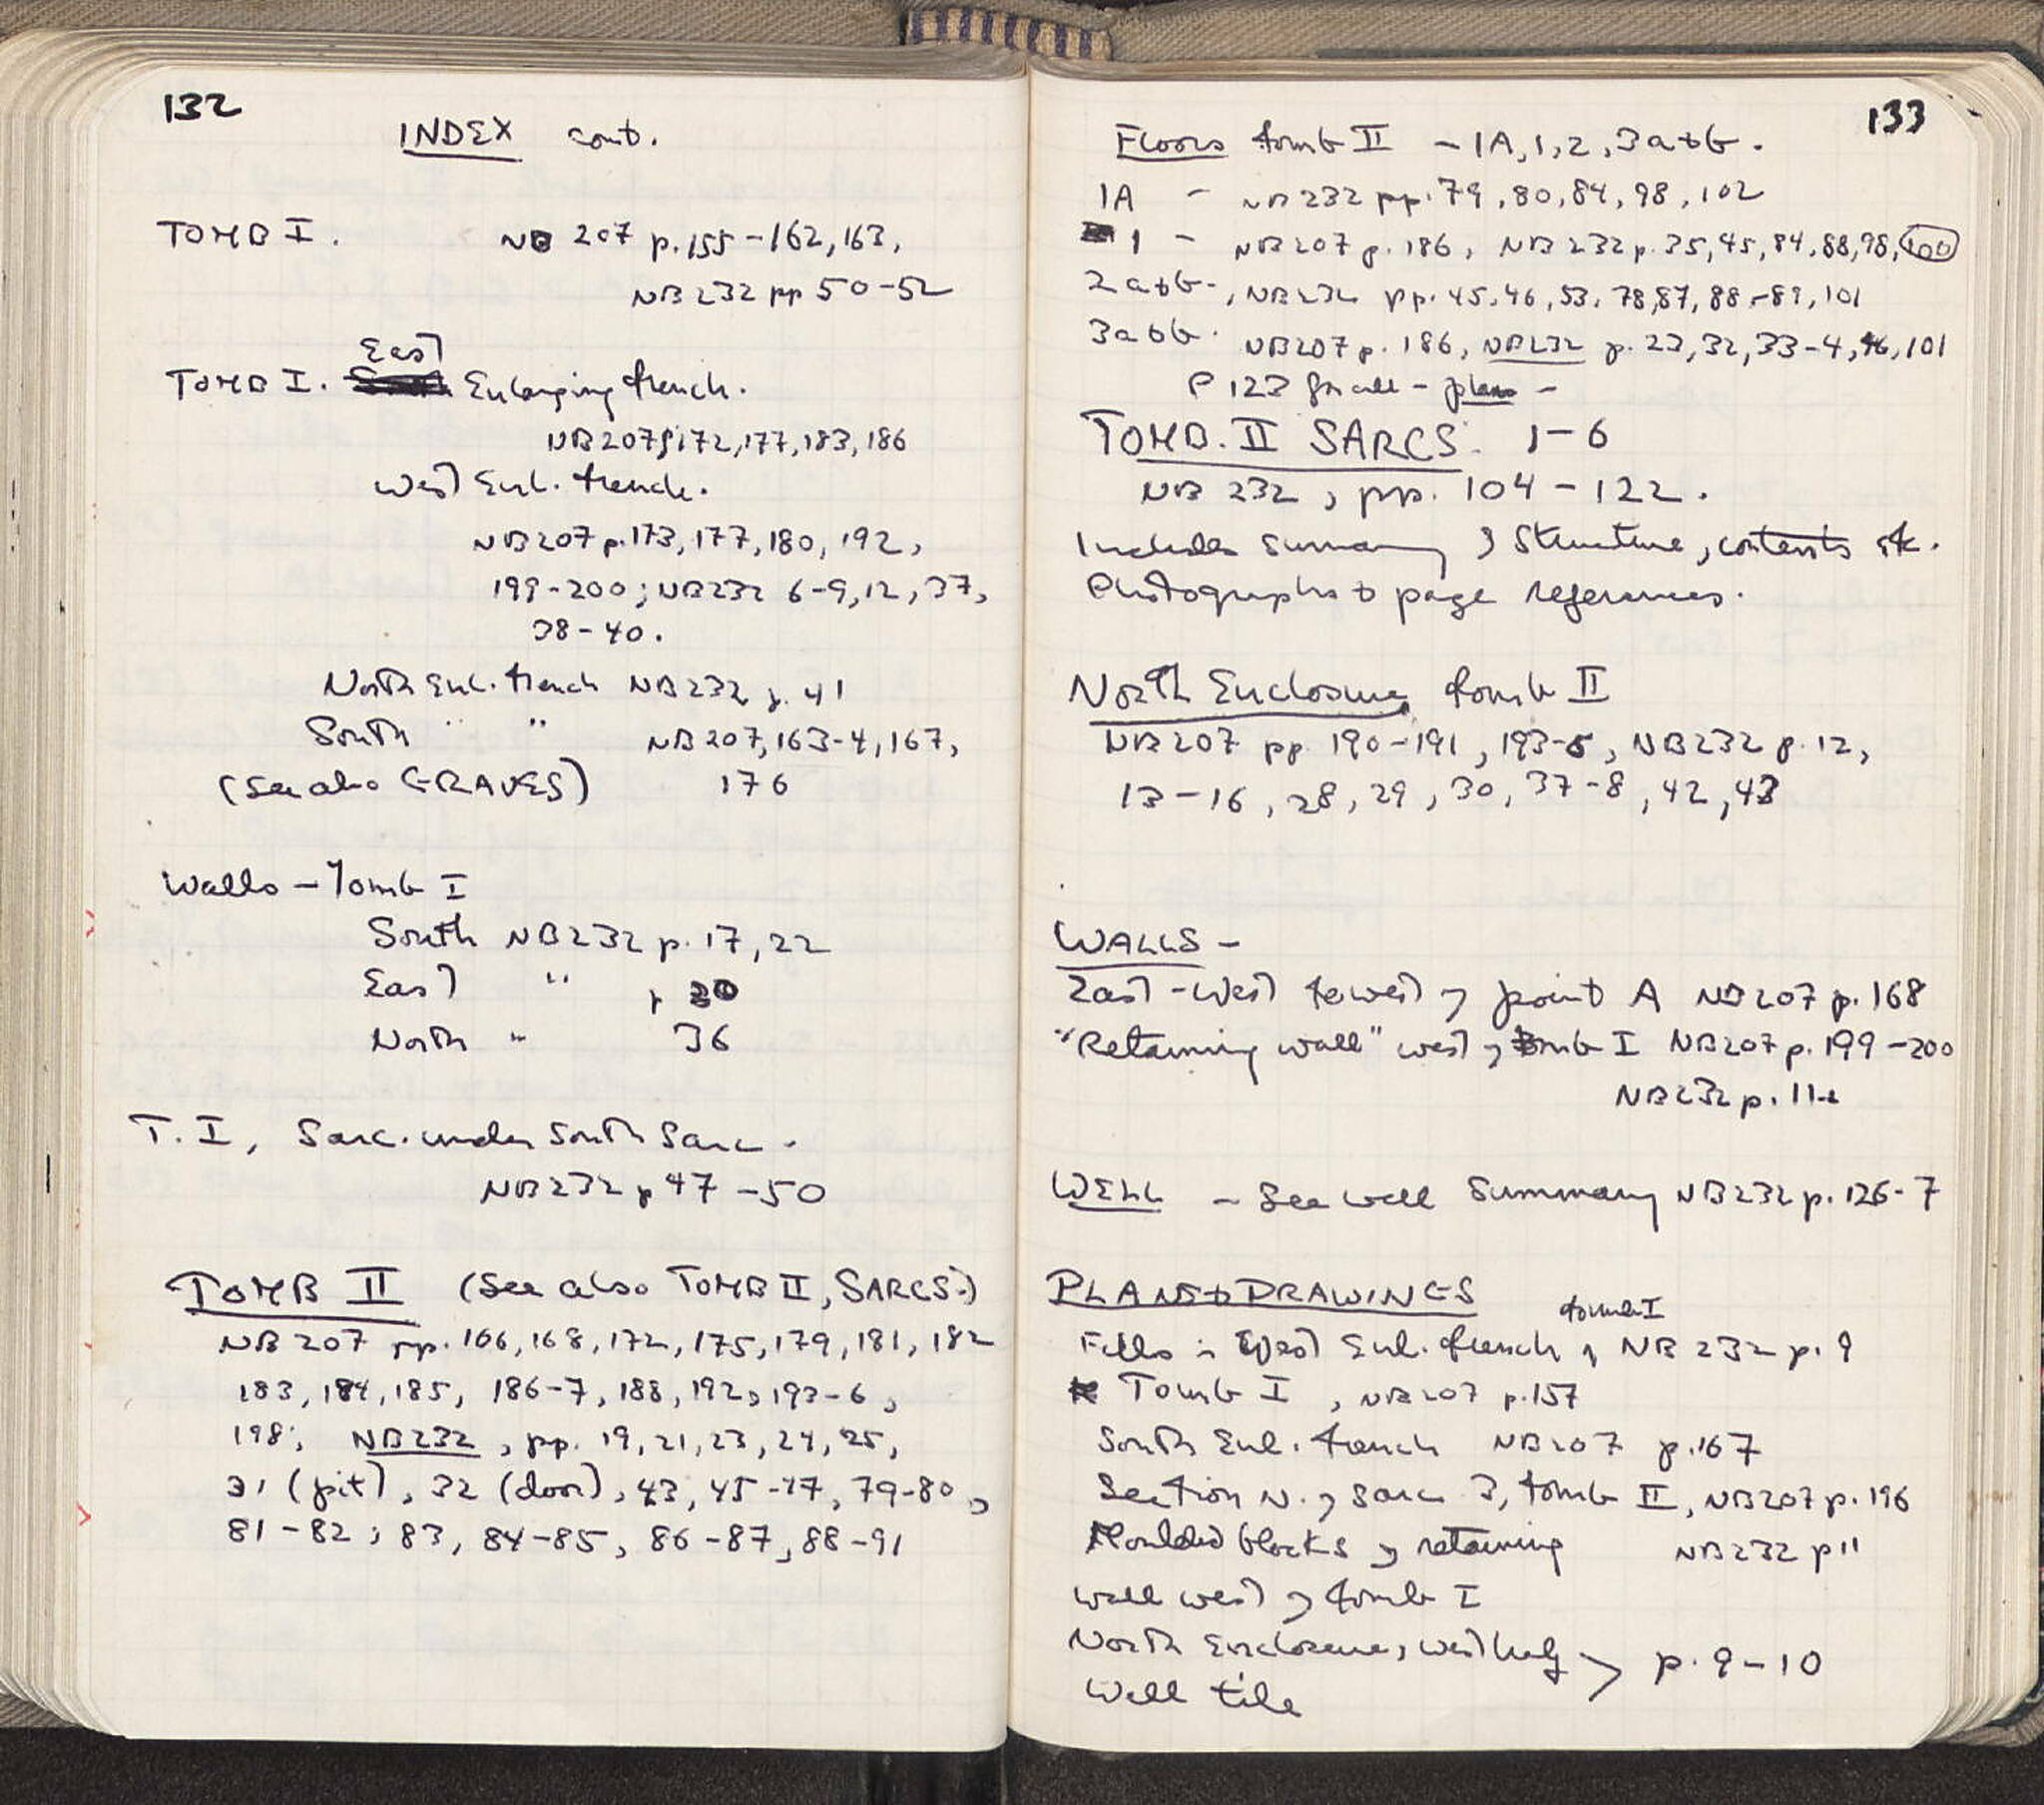 132
INDEX cont.
TOMB I. NB 207 p.155-162, 163,
NB232 pp 50-52
East
TOMB I. Enlarging trench.
NB207 p.172, 177, 183, 186
West Enl. trench.
NB207 p.173, 177, 180, 192,
199-200; NB232 6-9, 12, 37,
38-40.
North Enl. trench NB232 p. 41
South " " NB207, 163-4, 167,
(See also GRAVES) 176
Walls - Tomb I
South NB232 p. 17, 22
East " p 20
North " 36
T. I, Sarc. under South Sarc.
NB232 p 47-50
TOMB II (See also TOMB II, SARCS.)
NB 207 pp. 166, 168, 172, 175, 179, 181, 182
183, 184, 185, 186-7, 188, 192, 193-6,
198; NB232, pp. 19, 21, 23, 24, 25,
31 (pit), 32 (door), 43, 45-47, 79-80,
81-82; 83, 84-85, 86-87, 88-91
133
Floors tomb II - 1A, 1, 2, 3a+b.
1A - NB232 pp. 79, 80, 84, 98, 102
1 - NB207 p. 186, NB232 p. 35, 45, 84, 88, 98, 100
2a+b-, NB232 pp. 45, 46, 53, 78, 87, 88-89, 101
3a+b. NB207 p. 186, NB232 p. 23, 32, 33-4, 46, 101
P 123 for all - plan -
TOMB. II SARCS. 1-6
NB 232, pp. 104-122.
Includes summary of structure, contents etc.
Photographs + page references.
North Enclosure, tomb II
NB207 pp 190-191, 193-5, NB232 p. 12,
13-16, 28, 29, 30, 37-8, 42, 43
WALLS -
East-West to west of point A NB207 p. 168
"Retaining wall" west of tomb I NB207 p. 199-200
NB232 p. 11
WELL - See well Summary NB232 p. 126-7
PLANS + DRAWINGS
tomb I
Fills in West Enl. trench of NB 232 p. 9
Tomb I, NB207 p.157
South Enl. trench NB207 p.167
Section N. of Sarc 3, tomb II, NB207 p. 196
Moulded blocks of retaining NB232 p 11
wall west of tomb I
North Enclosure, west half > p. 9-10
Well tile